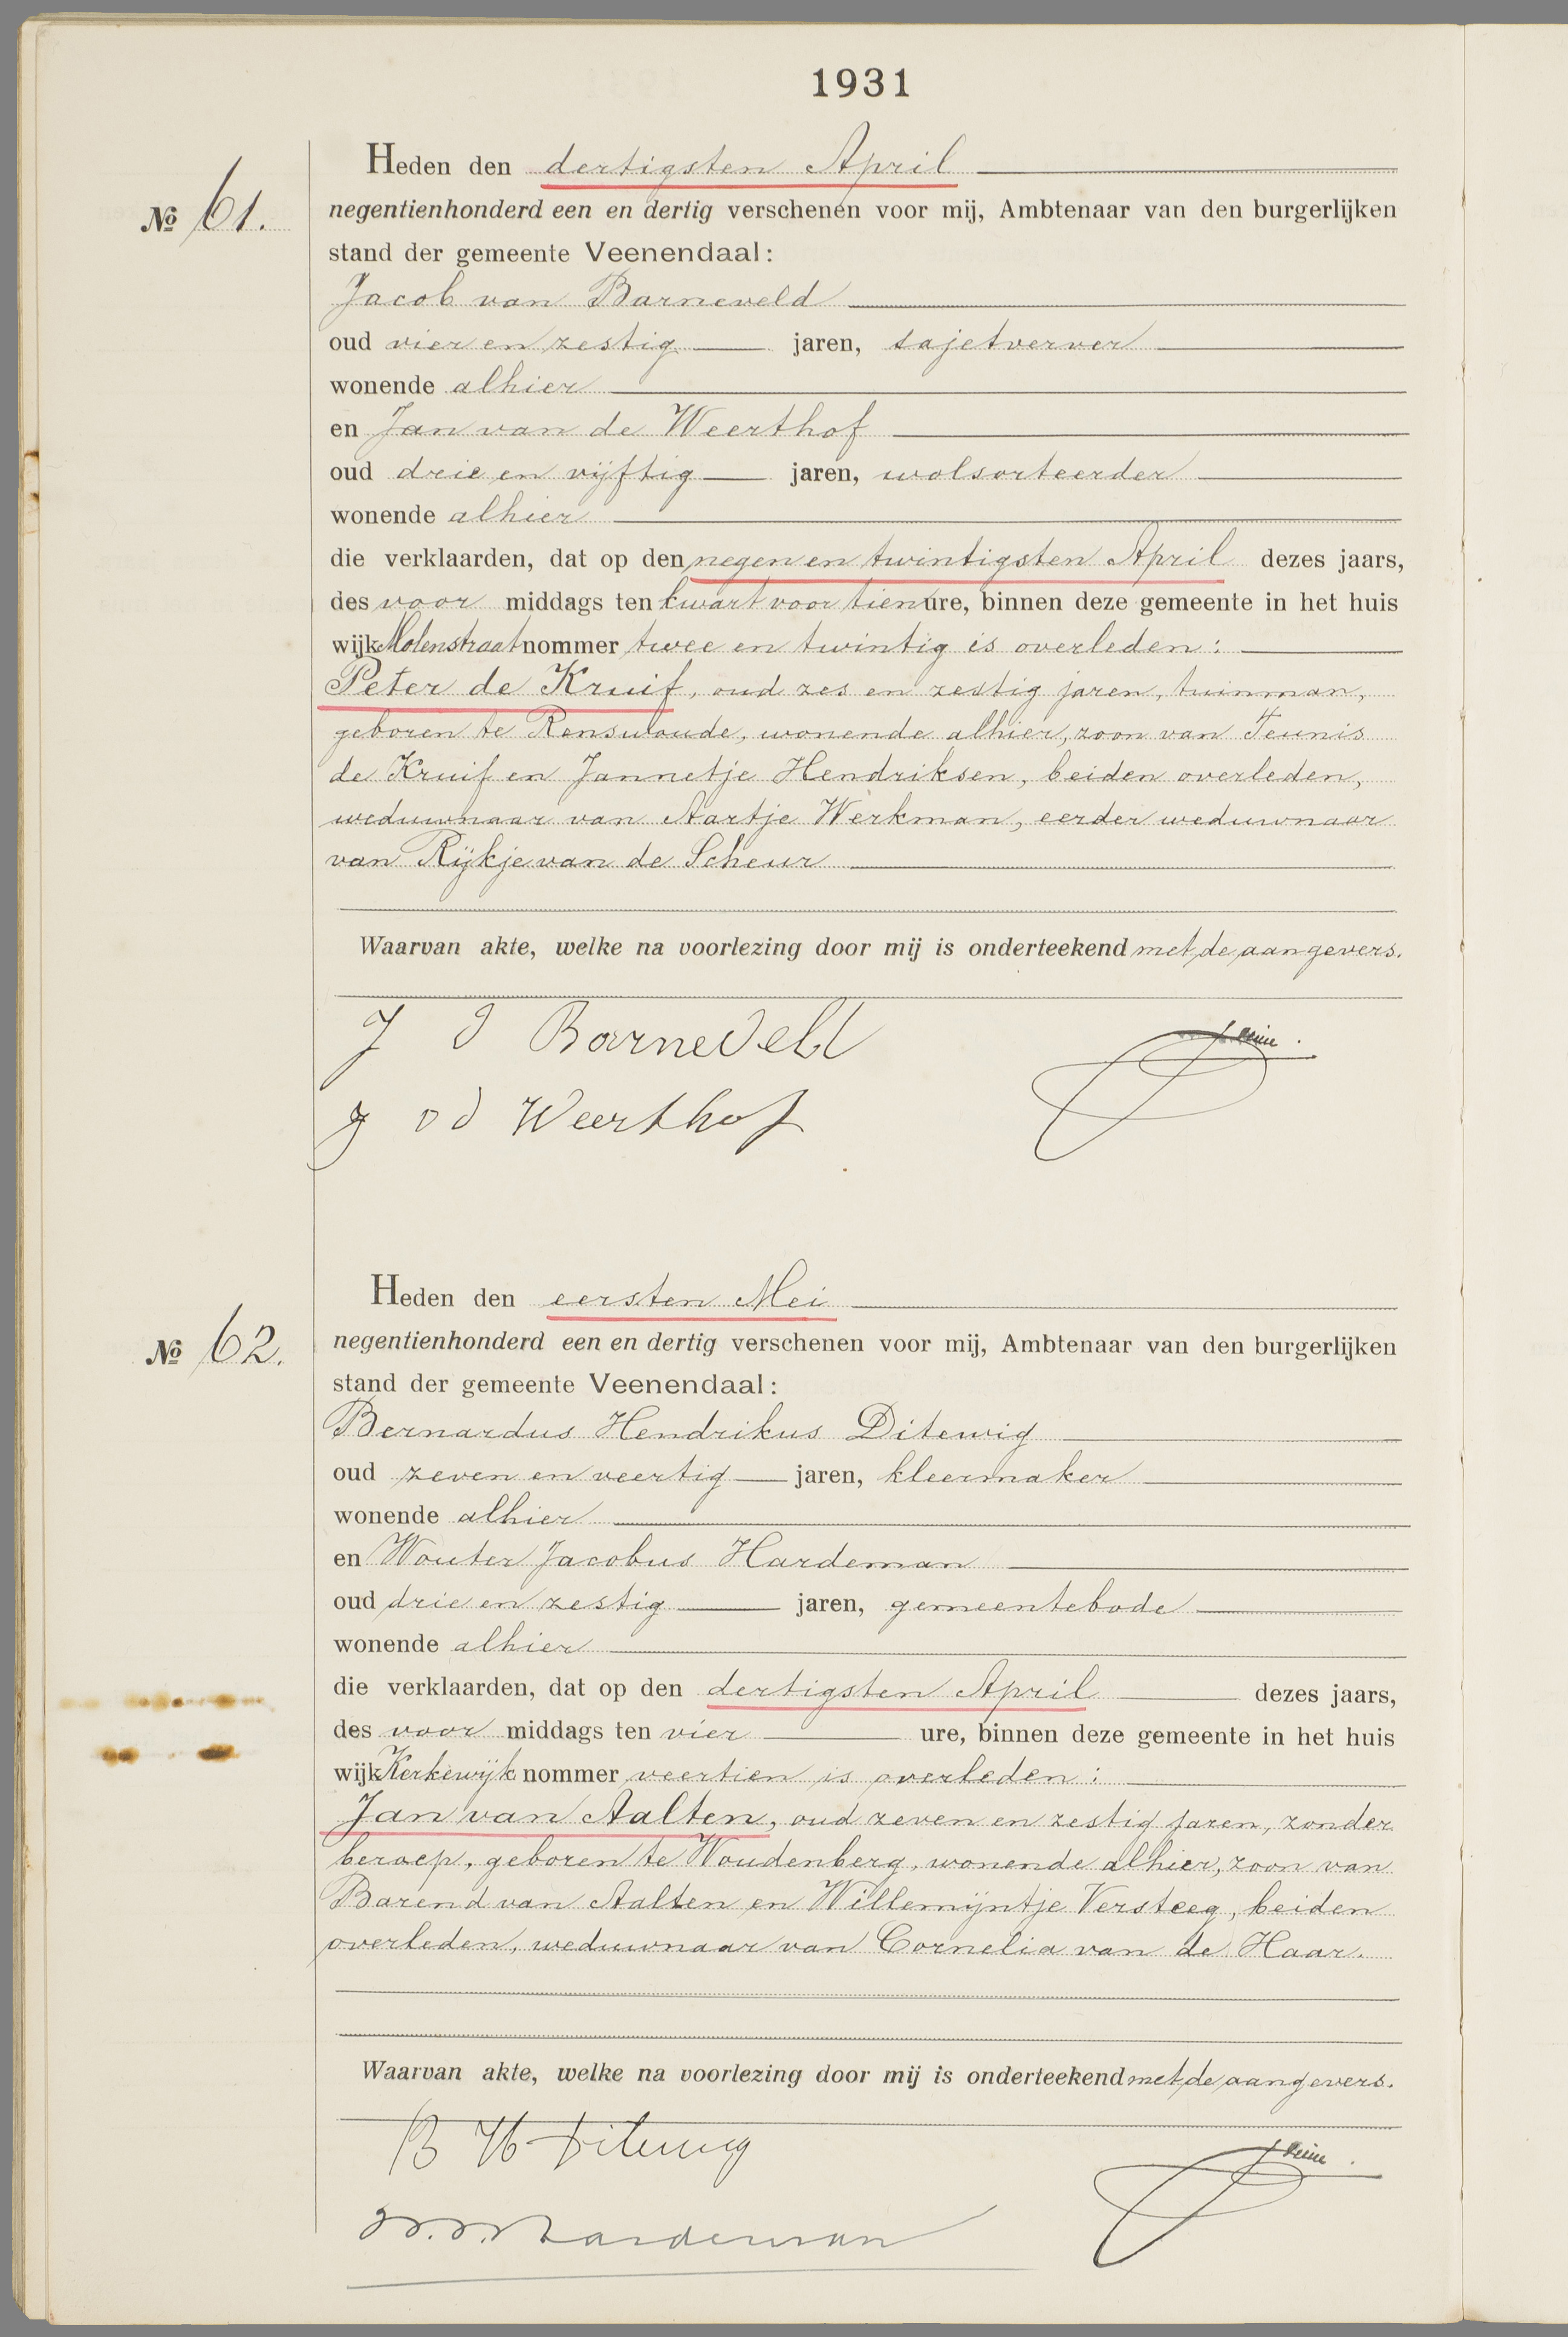 1931
Heden den dertigsten April
No 61.
negentienhonderd een en dertig verschenen voor mij, Ambtenaar van den burgerlijken
stand der gemeente Veenendaal:
Jacob van Barneveld
oud vier en zestig jaren, sajetverver
wonende alhier
en Jan van de Weerthof
oud drie en vijftig jaren, wolsorteerder
wonende alhier
die verklaarden, dat op den negen en twintigsten April dezes jaars,
des voor middags ten kwart voor tien ure, binnen deze gemeente in het huis
wijk Molenstraat nommer twee en twintig is overleden:
Peter de Kruif, oud zes en zestig jaren, tuinman,
geboren te Renswoude, wonende alhier, zoon van Teunis
de Kruif en Jannetje Hendriksen, beiden overleden,
weduwnaar van Aartje Werkman, eerder weduwnaar
van Rijkje van de Scheur
Waarvan akte, welke na voorlezing door mij is onderteekend met de aangevers.
J v Barneveld
J v d Weerthof
Heden den eersten Mei
No 62.
negentienhonderd een en dertig verschenen voor mij, Ambtenaar van den burgerlijken
stand der gemeente Veenendaal:
Bernardus Hendrikus Ditewig
oud zeven en veertig jaren, kleermaker
wonende alhier
en Wouter Jacobus Hardeman
oud drie en zestig jaren, gemeentebode
wonende alhier
die verklaarden, dat op den dertigsten April dezes jaars,
des voor middags ten vier ure, binnen deze gemeente in het huis
wijk Kerkewijk nommer veertien is overleden:
Jan van Aalten, oud zeven en zestig jaren, zonder
beroep, geboren te Woudenberg, wonende alhier, zoon van
Barend van Aalten en Willemijntje Versteeg, beiden
overleden, weduwnaar van Cornelia van de Haar.
Waarvan akte, welke na voorlezing door mij is onderteekend met de aangevers.
B H Ditewig
W. J. Hardeman